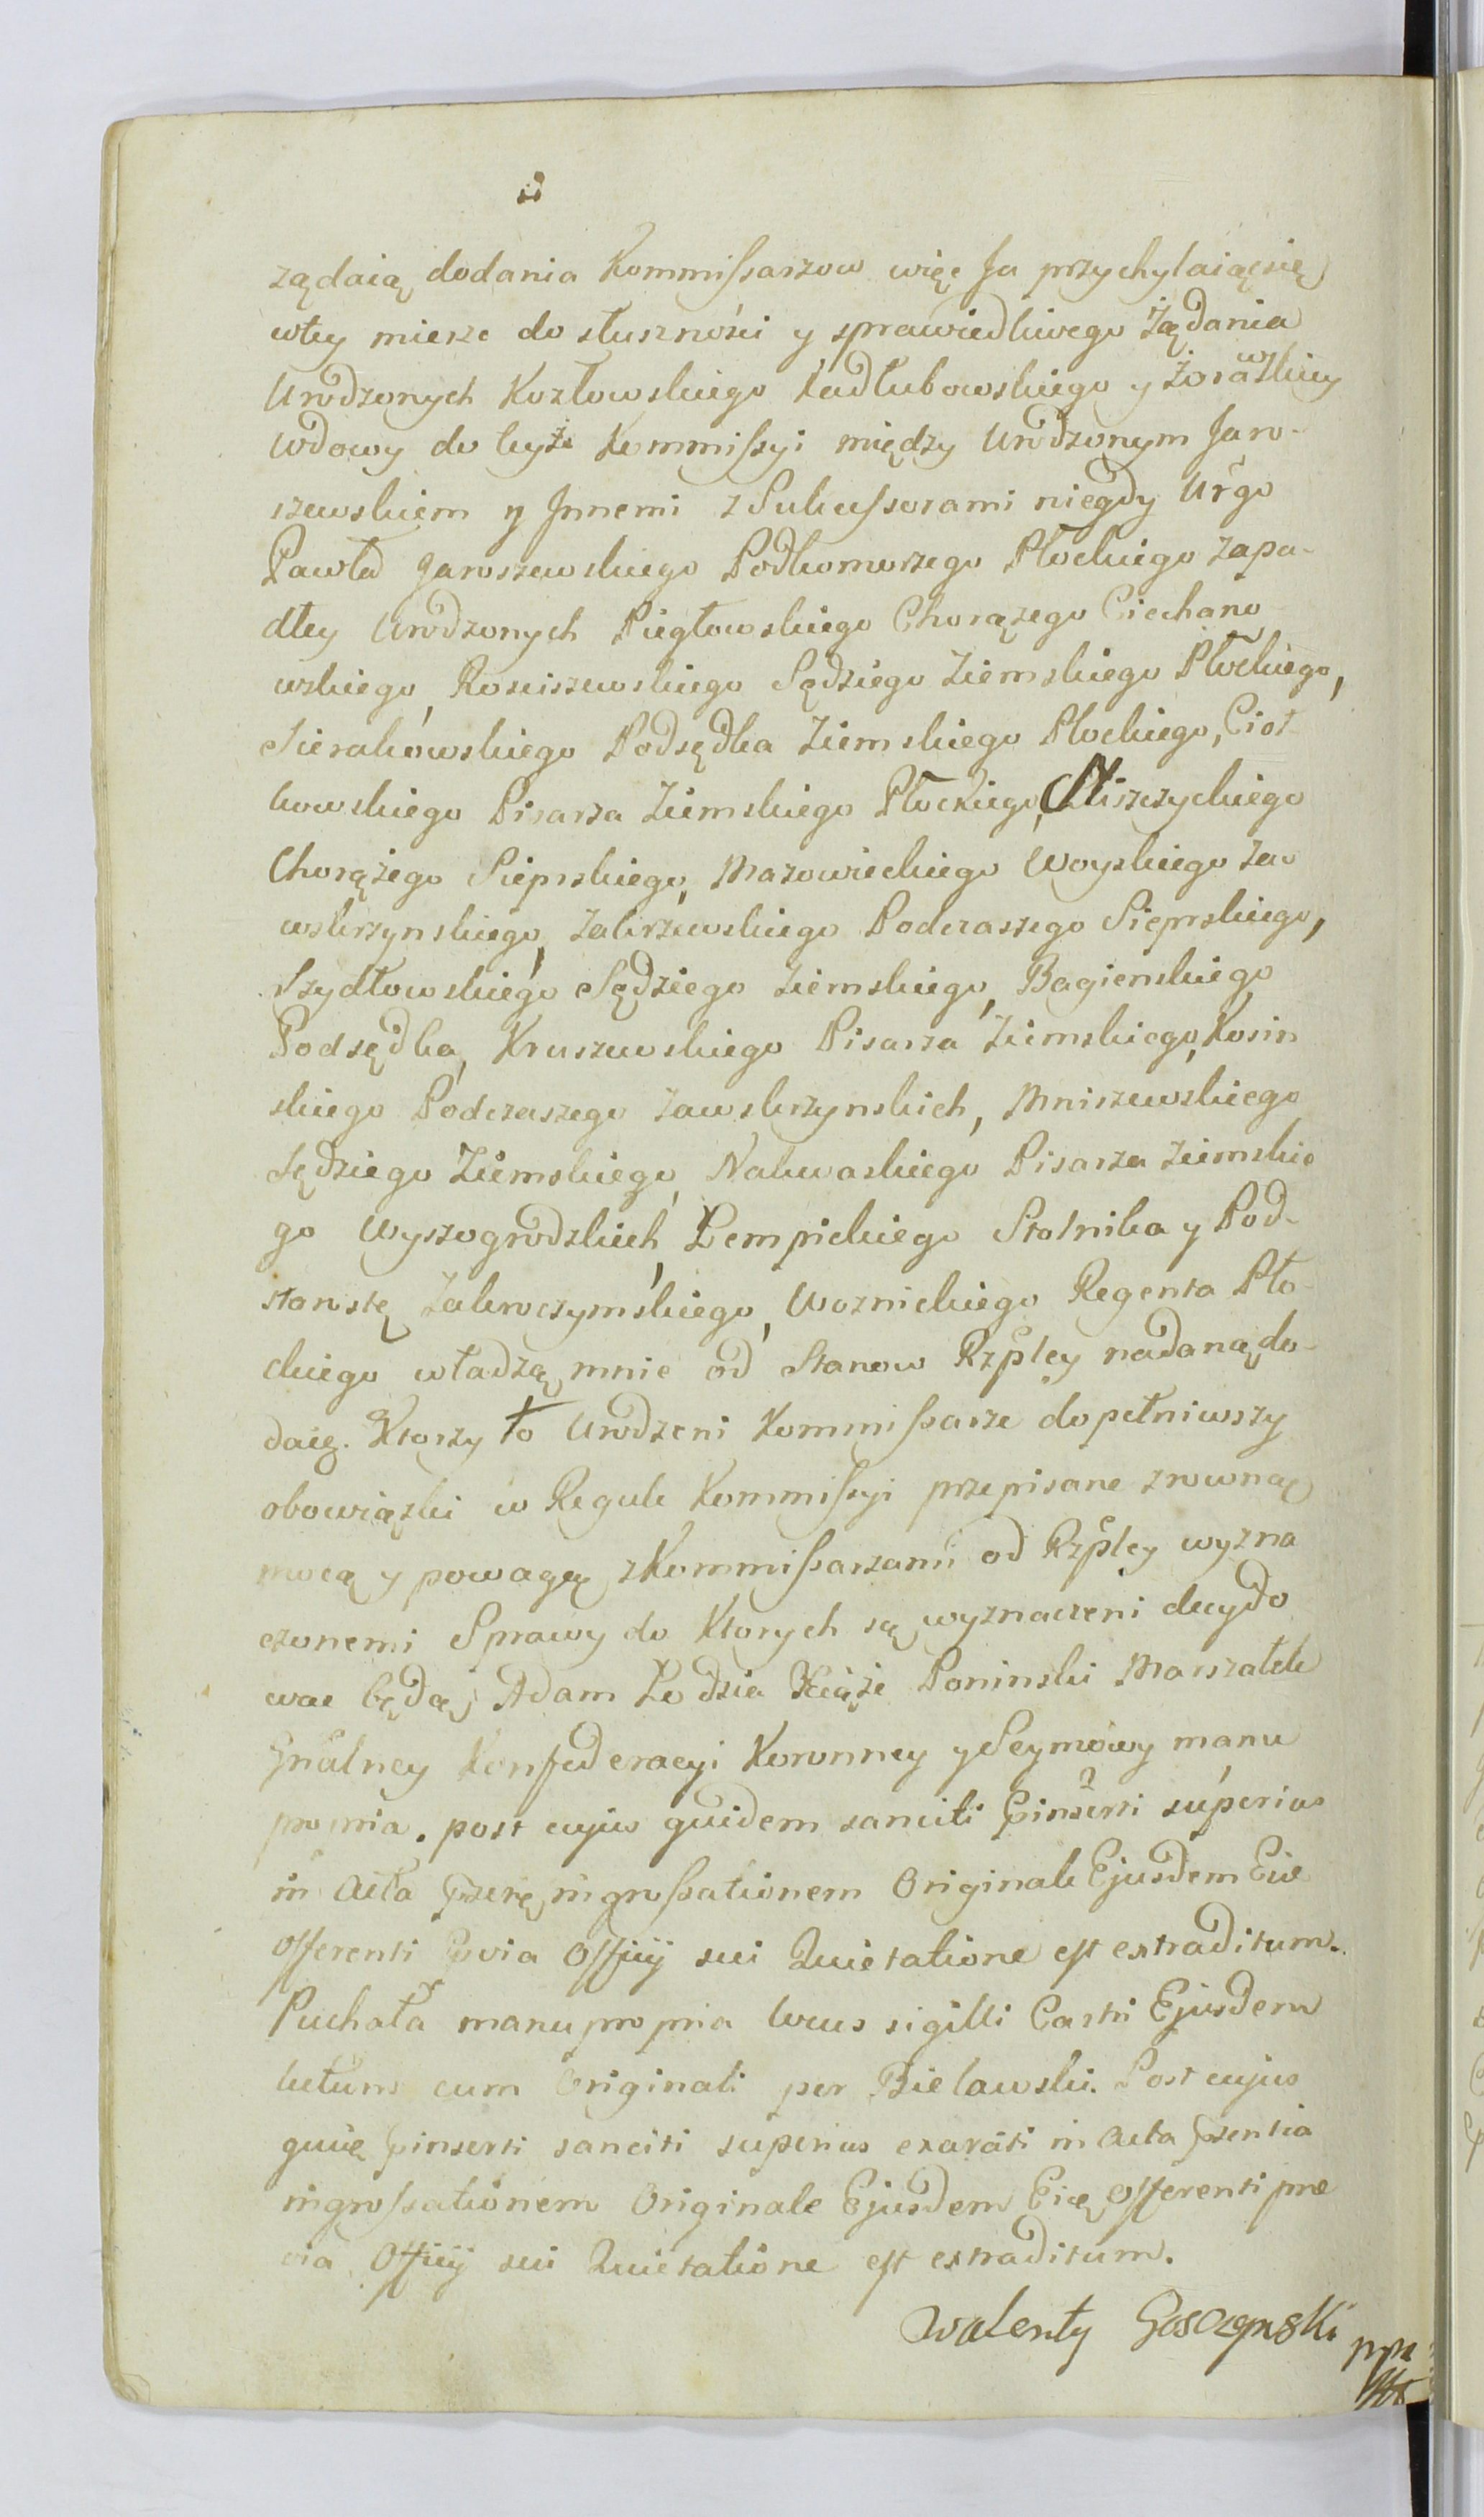 ządaią dodania Kommissarzow więc Ja przychylaiąc się
wtey mierze do słusznósci y sprawiedliwego Żądania
Urodzonych Kozłowskiego Kadłubowskiego y Żorawskiey
Wdowy do teyże Kommissyi między Urodzonym Jaro-
szewskiem y Jnnemi z Sukcessorami niegdy Urgo
Pawła Jaroszewskiego Podkomorzego Płockiego zapa-
dłey Urodzonych Piegłowskiego Chorązego Ciechano
wskiego, Rosciszewskiego Sędziego Ziemskiego Płockiego,
Sierakowskiego Podsędka Ziemskiego Płockiego, Ciot
kowskiego Pisarza Ziemskiego Płockiego, Mliszczyckiego
Chorążego Sieprskiego, Mazowieckiego Woyskiego Za
wskrzynskiego, Zakrzewskiego Podczaszego Sieprskiego,
Szydłowskiego Sędziego Ziemskiego, Bagienskiego
Podsędka, Kruszewskiego Pisarza Ziemskiego, Kosin
skiego Podczaszego Zawskrzynskich, Mniszewskiego
Sędziego Ziemskiego, Nakwaskiego Pisarza Ziemskie
go Wyszogrodzkich, Łempickiego Stolnika y Pod-
starostę Zakroczymskiego, Woznickiego Regenta Pło-
ckiego władzą mnie od Stanow Rzpltey nadaną do-
daię. Ktorzy to Urodzeni Kommissarze dopełniwszy
obowiązki w Regule Kommissyi przepisane zrowną
mocą y powagą z Kommissarzami od Rzpltey wyzna
czonemi Sprawy do Ktorych są wyznaczeni decydo
wac będą, Adam Łodzia Xiąże Poninski Marszałek
Gnalney Konfederacyi Koronney y Seymowy manu
propria. post cujus quidem sanciti pinserti superius
in Acta pntię ingrossationem Originale Ejusdem Eid
offerenti pvia Officij sui Quietatione est extraditum.
Puchała manu propria locus sigilli Castri Ejusdem
lectum cum Originali per Bielawski. Post cujus
quidę pinserti sanciti superius exarati in Acta psentia
ingrossationem Originale Ejusdem Eidę offerenti prae
via Officij sui Quietatione est extraditum.
Walenty Gosczynski
mpr